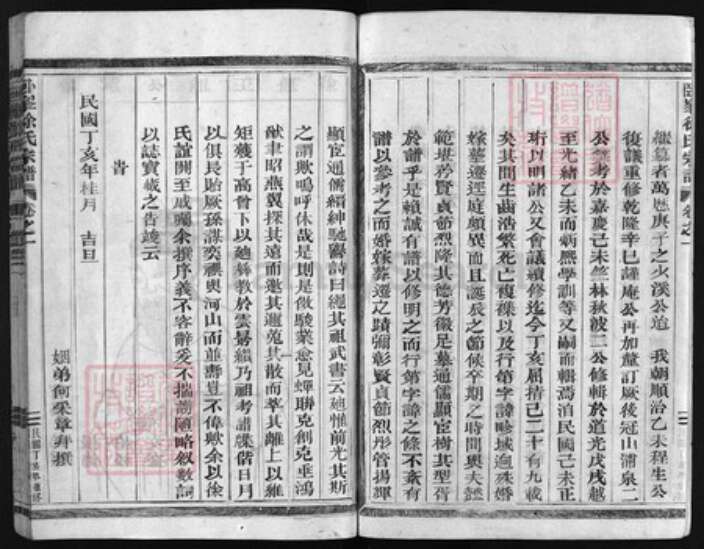 繼纂者萬厯庚子之火溪公迨 我朝順治乙未程生公
復議重修乾隆辛巳謹庵公再加釐訂厥後冠山浦泉二
公纂考於嘉慶己未竺林秋波二公修輯於道光戊戌越
至光緒乙未而炳熙學訓等又嗣而輯焉洎民國己未正
珩以明諸公又會議續修迄今丁亥屈指己二十有九載
矣其間生齒浩繁死亡複襍以及行第字諱畛域迥殊婚
嫁塟遷逕庭頗異而且誕辰之節候卒期之時間與夫懿
範堪矜賢貞節烈隆其德芳徽足慕通儒顯宦樹其型胥
於譜乎是賴誠有譜以修明之而行第字諱之條不紊有
譜以參考之而婚嫁葬遷之蹟彌彰賢貞節烈彤管揚輝
顯宦通儒縉紳馳譽詩曰繩其祖武書云廸惟前光其斯
之謂歟嗚呼休哉是則是倣駿業愈見蟬聯克創克垂鴻
猷聿昭燕翼探其遠而邀其邇蒐其散而萃其離上以維
矩矱于高曾下以廸彝教於雲礽纘乃祖考譜牒偕日月
以俱長貽厥孫謀奕禩與河山而並壽豈不偉歟余以徐
氏誼關至戚屬余撰序義不容辭爰不揣謭陋略叙數詞
以誌寶藏之告竣云
旹
民國丁亥年桂月 吉旦
姻弟何采章拜撰
徐氏宗譜 卷之一